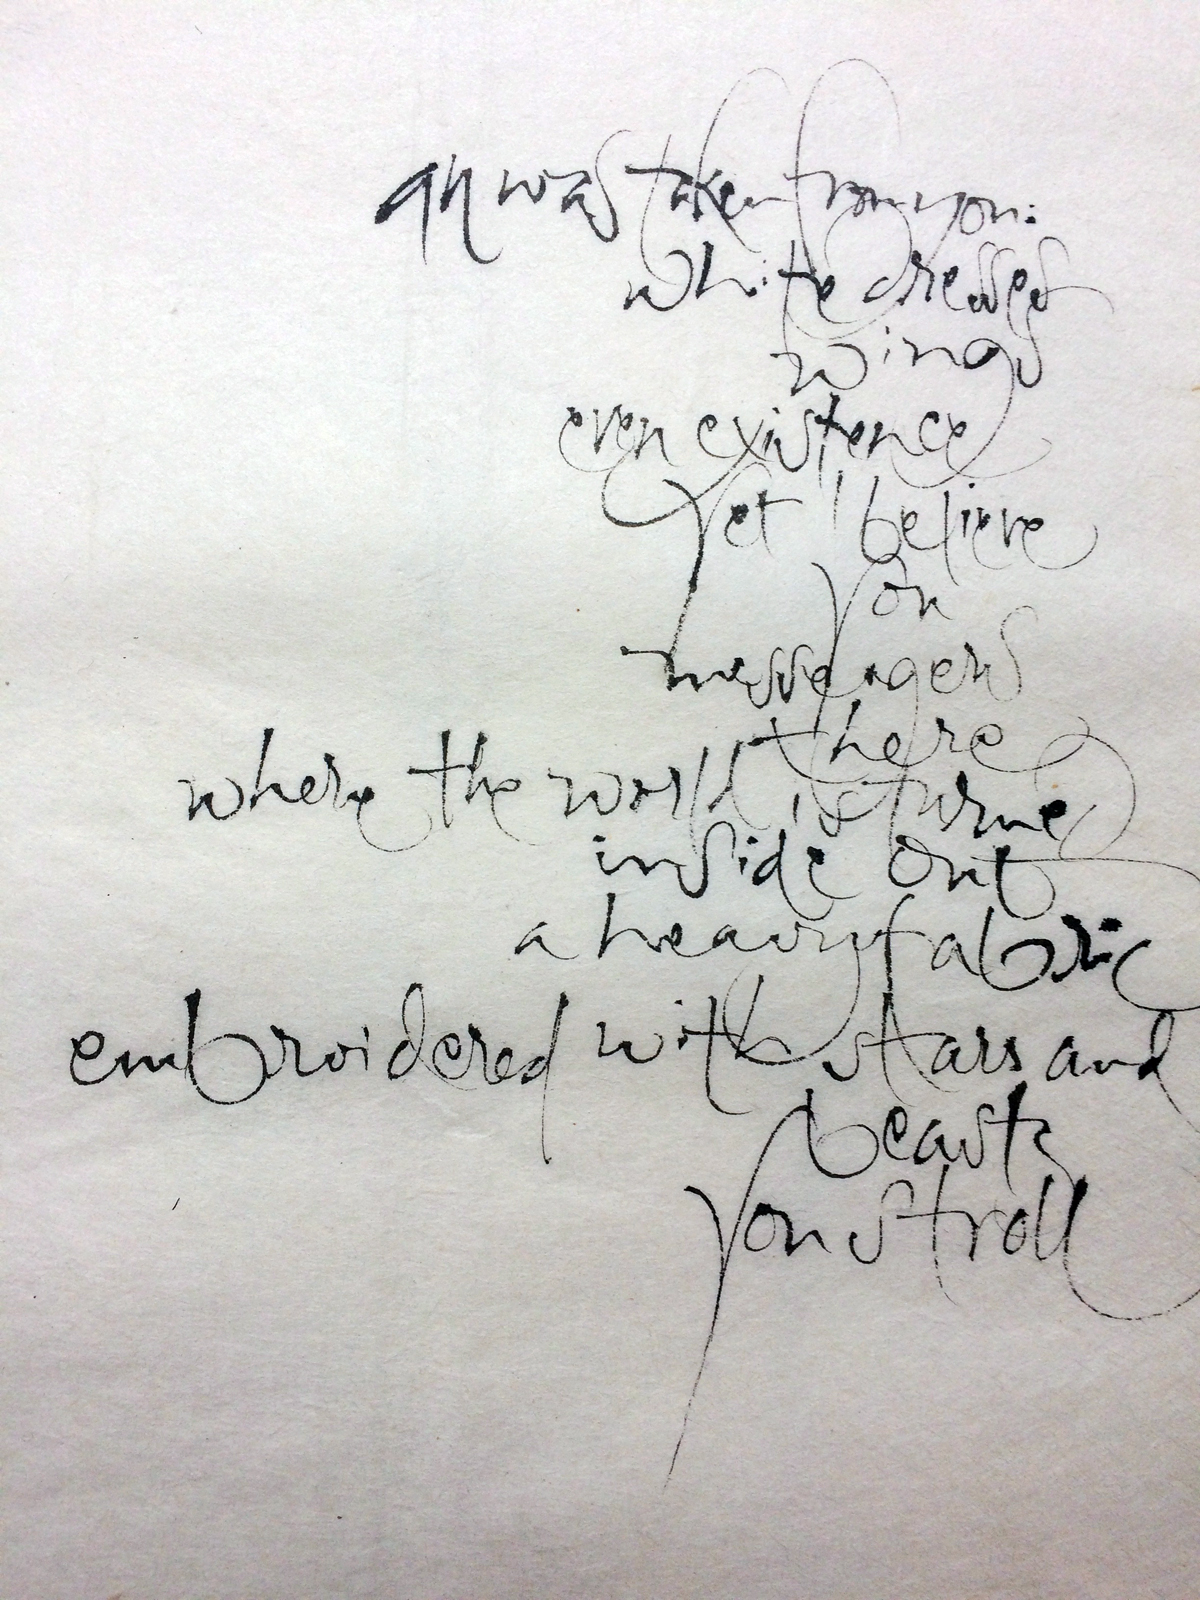 all was taken from you:
white dresses
wings
even existence
Yet I believe
you
messengers
there
where the world is turned
inside out
a heavy fabric
embroidered with stars and
beasts
you stroll